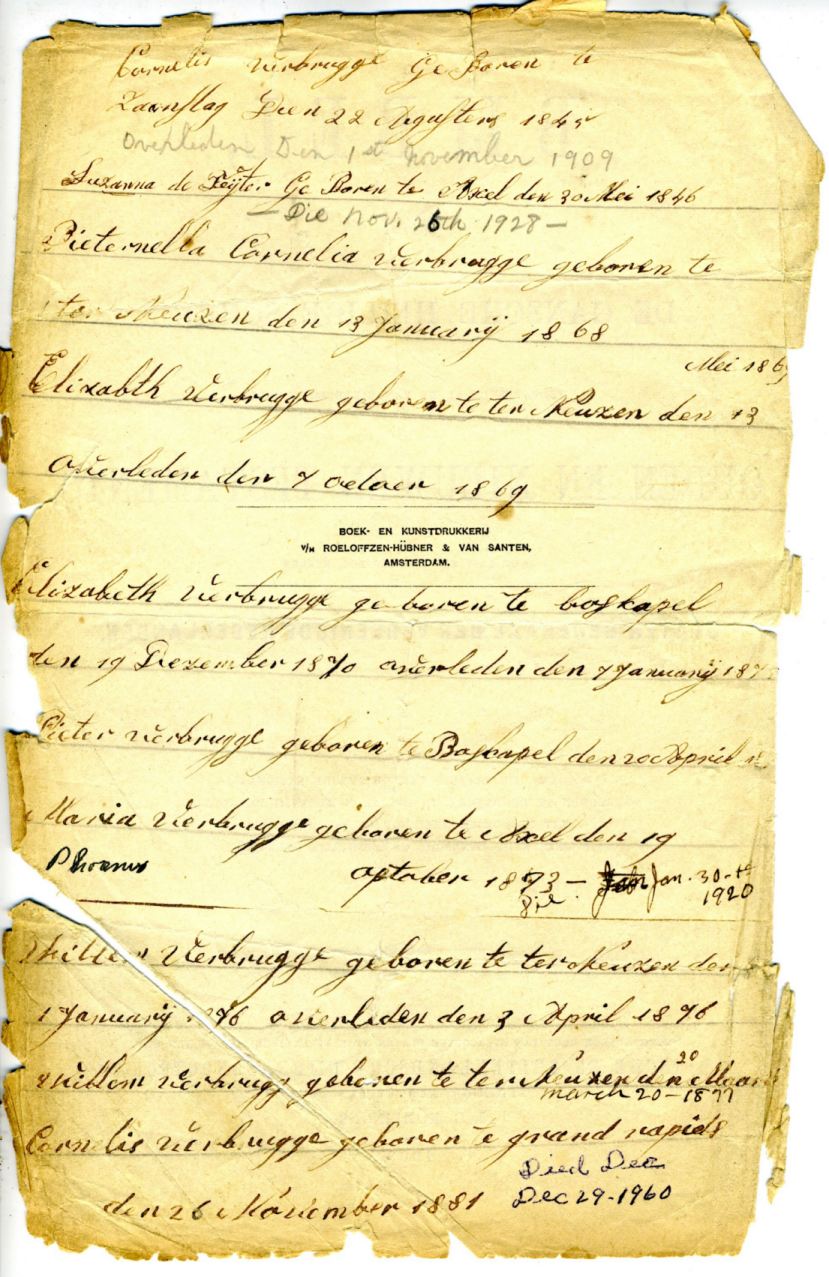 Cornelis Verbrugge Ge Boren te
Zaanslag Den 22 Agusters 1845
Overleden Den 1st November 1909
Suzanna de Feijter Ge Boren te Axel den 30 Mei 1846
— Die Nov. 26th. 1928 —
Pieternella Cornelia Verbrugge geboren te
ter Neuzen den 13 Januarij 1868
Mei 1869
Elizabth Verbrugge geboren te ter Neuzen den 13
overleden den 7 1869
BOEK- EN KUNSTDRUKKERIJ
V/H ROELOFFZEN-HÜBNER & VAN SANTEN,
AMSTERDAM.
Elizabeth Verbrugge ge boren te boskapel
den 19 Dezember 1870 overleden den 7 Januarij 187
Pieter Verbrugge geboren te Boskapel den 20 April
Maria Verbrugge geboren te Axel den 19
october 1873 — Jan. 30-th
Die. 1920
Willem Verbrugge geboren te ter Neuzen den
1 Januarij 1876 overleden den 3 April 1876
20
Willem Verbrugg geboren te ter Neuzen den Maar
march 20-1877
Cornelis Verbrugge geboren te grand rapids
Died Dec
den 26 November 1881 Dec 29-1960